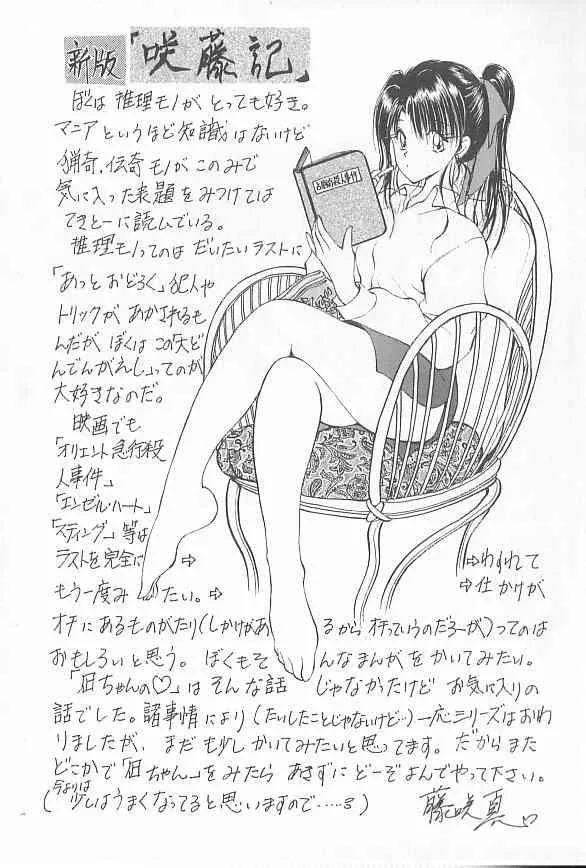 新版「咲藤記」
ぼくは 推理モノが とっても好き。
マニアというほど知識はないけど
猟奇、伝奇モノがこのみで
気に入った表題をみつけては
てきとーに読んでいる。
推理モノってのは だいたいラストに
「あっとおどろく」犯人や
トリックが あかされるも
んだが ぼくは この「大ど
んでんがえし」ってのが
大好きなのだ。
映画でも
「オリエント急行殺
人事件」
「エンゼル・ハート」
「スティング」等は
ラストを完全に⇨ ⇨わすれて
もう一度みたい。⇨ ⇨仕かけが
オチにあるものがたり(しかけがあるから オチっていうのだろーが)ってのは
おもしろいと思う。ぼくもそんなまんがをかいてみたい。
「旧ちゃんの♡」は そんな話じゃなかったけど お気に入りの
話でした。諸事情により(たいしたことじゃないけど…)一応シリーズはおわ
りましたが、まだも少しかいてみたいと思ってます。だからまた
どこかで「旧ちゃん」をみたら あきずに どーぞよんでやって下さい。
(今よりは少しはうまくなってると思いますので……)
藤咲真